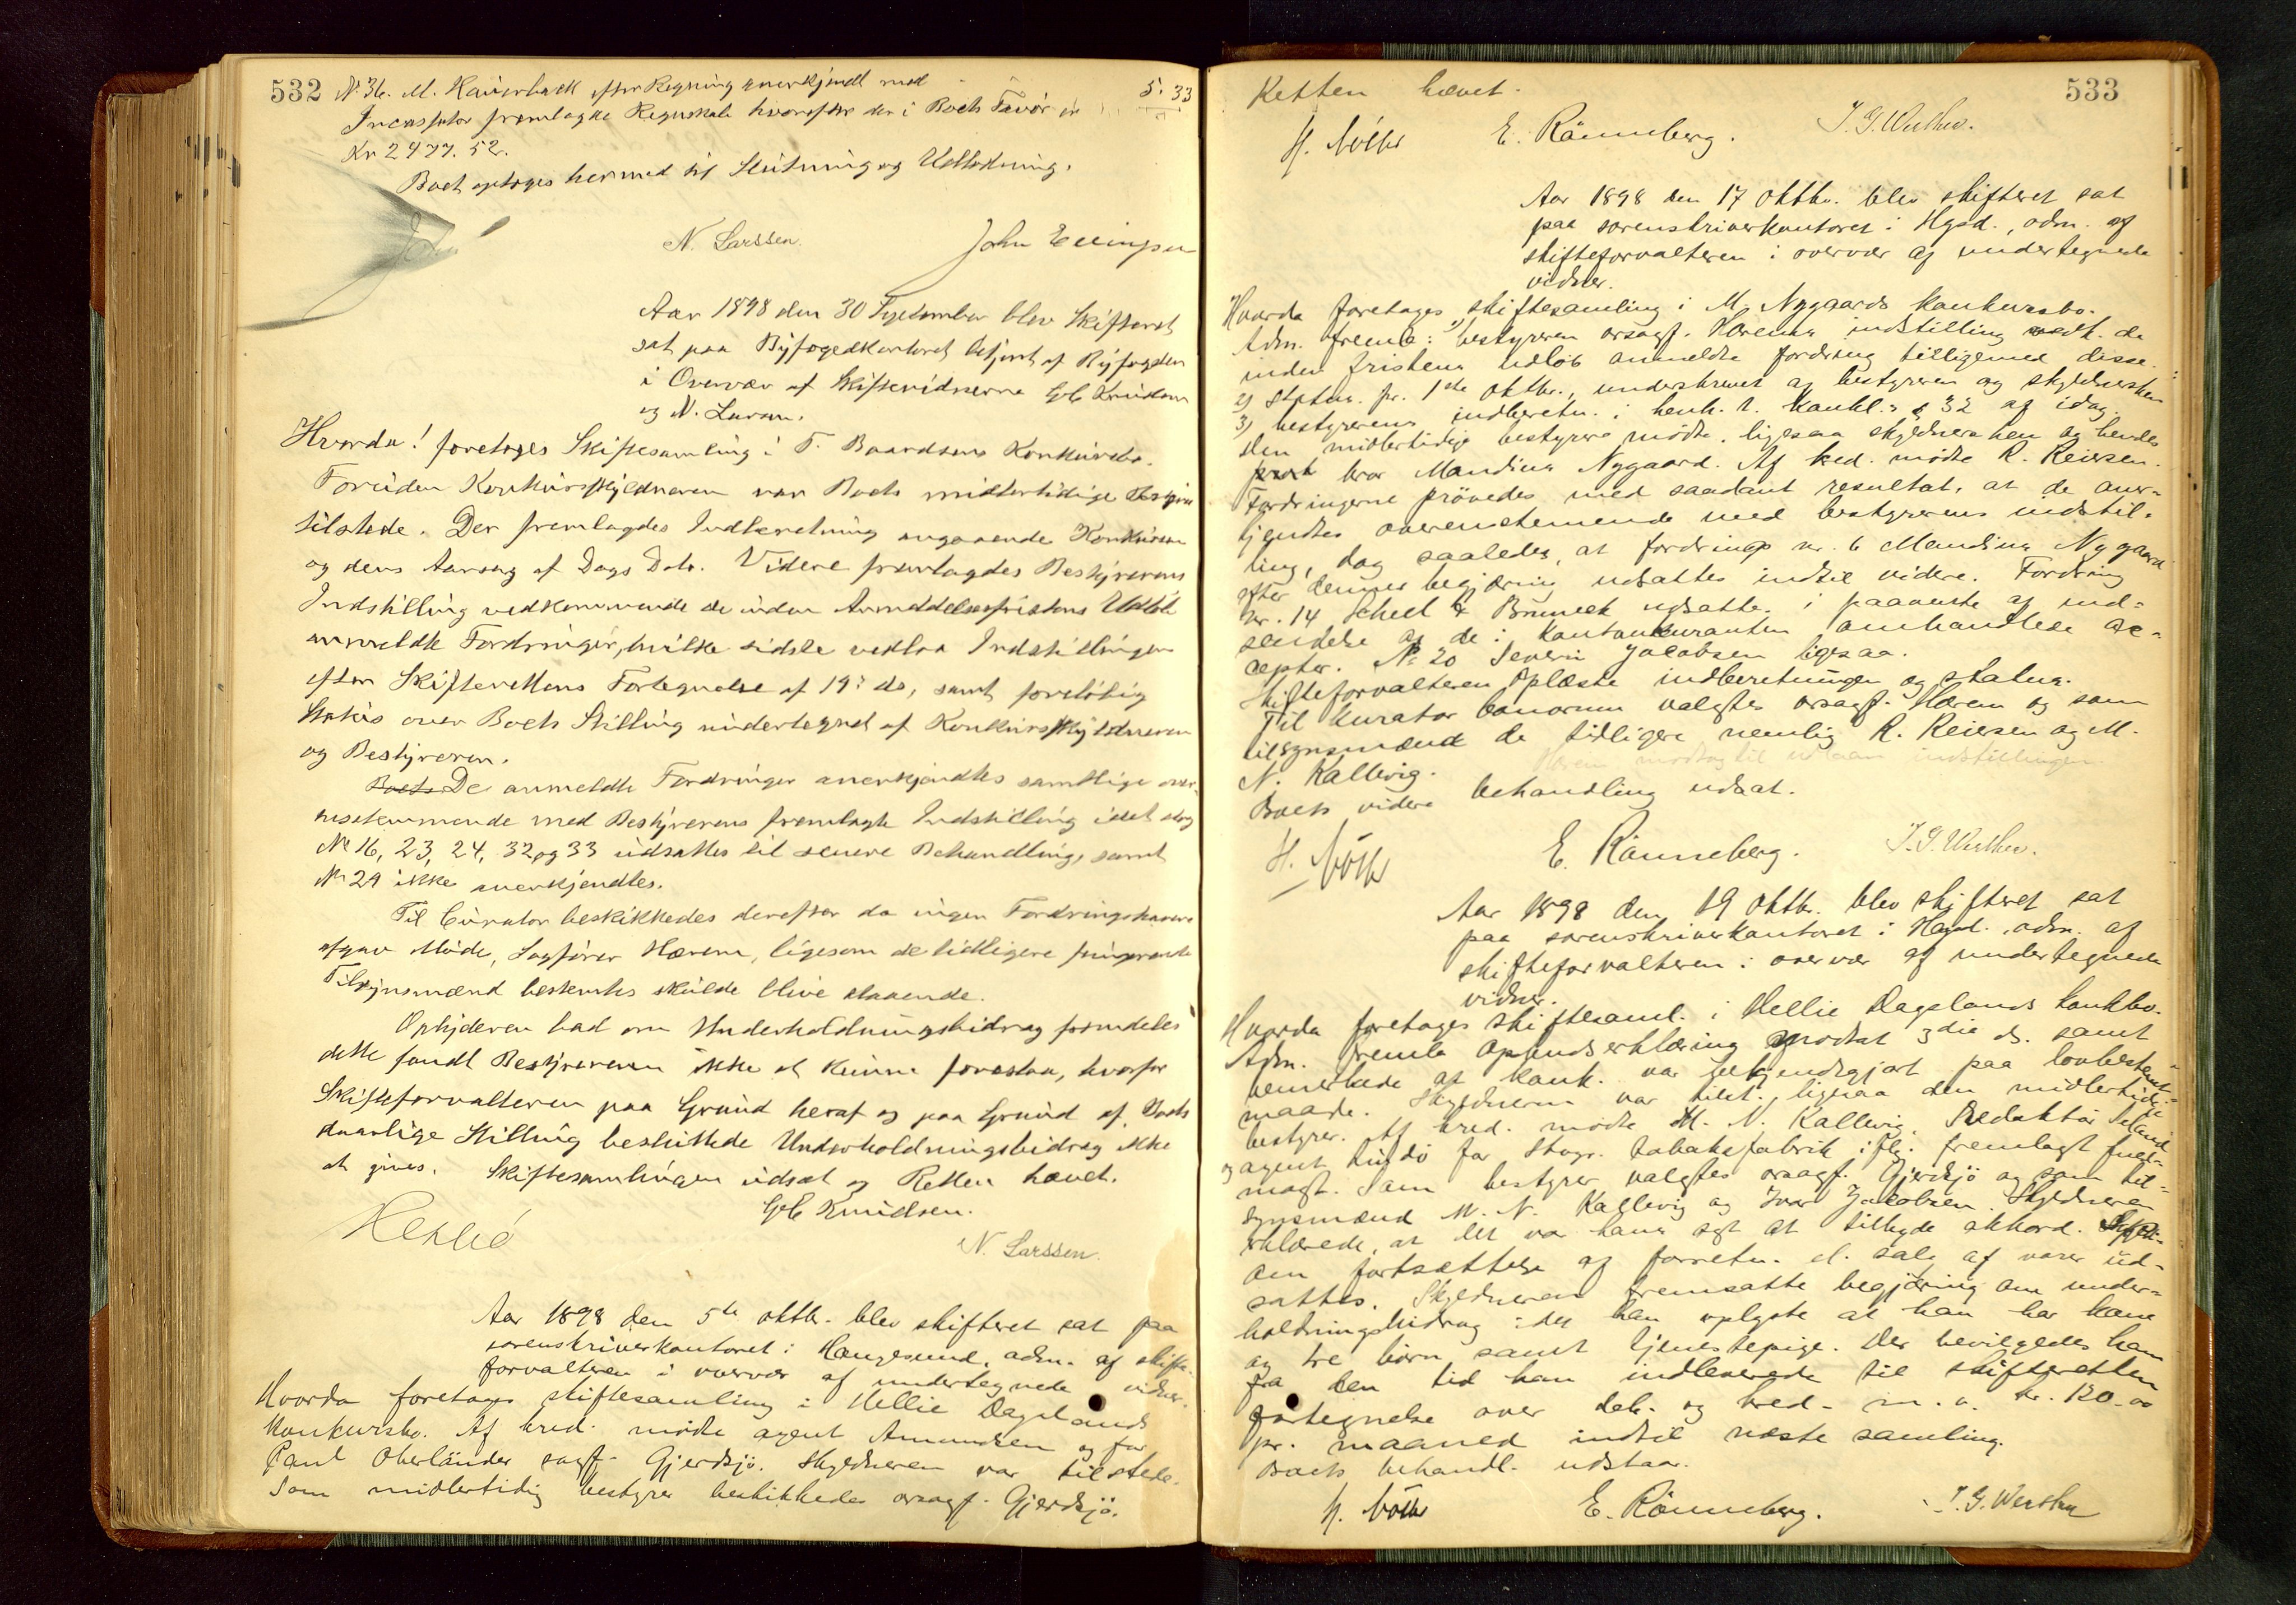 532
No 36. M. Hauerback efter Regning anerkjendt med 5.33
Incassator fremlagde Regnskab hvorefter der i Boets Favør er
Kr 2477.52.
Boet optoges hermed til Slutning og Udlodning.
N. Larssen. John Ellingsen
Aar 1898 den 30 September blev Skifteret
sat paa Byfogedkontoret betjent af Byfogden
i Overvær af Skiftevidnerne G Knudsen
og N. Larsen.
Hvorda! foretoges Skiftesamling i T. Baardsens Konkursbo.
Foruden Konkursskyldneren var Boets midlertidige Bestyrer
tilstede. Der fremlagdes Indberetning angaaende Konkursen
og dens Aarsag af Dags Dato. Videre fremlagdes Bestyrerens
Indstilling vedkommende de inden Anmeldelsesfristens Udløb
anmeldte Fordringer, hvilke sidste vedlaa Indstillingen
efter Skifterettens Fortegnelse af 19de ds, samt foreløbig
Status over Boets Stilling undertegnet af Konkursskyldneren
og Bestyreren.
Boets De anmeldte Fordringer anerkjendtes samtlige over-
ensstemmende med Bestyrerens fremlagte Indstilling idet dog
No 16, 23, 24, 32 og 33 udsattes til senere Behandling, samt
No 29 ikke anerkjendtes.
Til Curator beskikkedes derefter da ingen Fordringshavere
afgav Møde, Sagfører Hærem, ligesom de tidligere fungerende
Tilsynsmænd bestemtes skulde blive staaende.
Opbyderen bad om Underholdningsbidrag fremdeles
dette fandt Bestyreren ikke at kunne foreslaa, hvorfor
Skifteforvalteren paa Grund heraf og paa Grund af Boets
daarlige Stilling besluttede Underholdningsbidrag ikke
at gives. Skiftesamlingen udsat og Retten hævet.
G Knudsen.
N. Larssen.
Aar 1898 den 5te oktbr. blev skifteret sat paa
sorenskriverkontoret i Haugesund, adm. af skifte-
forvalteren i overvær af undertegnede vidner.
Hvorda foretoges skiftesamling i Hellie Dagslands
konkursbo. Af kred. mødte agent Amundsen og for
Paul Oberländer sagf. Gjerdsjø. Skyldneren var tilstede.
Som midlertidig bestyrer beskikkedes orsagf. Gjerdsjø.
533
Retten hævet.
E. Rønneberg. T. G. Werther.
Aar 1898 den 17 oktbr. blev skifteret sat
paa sorenskriverkontoret i Hgsd., adm. af
skifteforvalteren i overvær af undertegnede
vidner.
Hvorda foretoges skiftesamling i M. Nygaards konkursbo.
Adm. fremla: 1) bestyreren orsagf. Hærems indstilling vedk. de
inden fristens udløb anmeldte fordring tilligemed disse.
2) Status. pr. 1ste oktbr., underskrevet af bestyreren og skyldnersken
3) bestyrerens indberetn. i henh. t. konkl.s § 32 af idag.
Den midlertidige bestyrer mødte, ligesaa skyldnersken og hendes
bror Mandius Nygaard. Af kred. mødte R. Reiersen.
Fordringerne prøvedes med saadant resultat, at de aner-
kjendtes overensstemmende med bestyrerens indstil-
ling, dog saaledes, at fordring nr. 6 Mandius Nygaard
efter dennes begjæring udsattes indtil videre. Fordring
nr. 14 Scheel & Brunech udsatte. i paavente af ind-
sendelse af de i kontokuranten omhandlede ac-
cepter. No 20 Severin Jacobsen ligesaa.
Skifteforvalteren oplæste indberetningen og status.
Til kurator bonorum valgtes orsagf. Hærem og som
tilsynsmænd de tidligere nemlig R. Reiersen og M.
N. Kallevig. Hærem modtog til udlaan indstillingen.
Boets videre behandling udsat.
E. Rønneberg. T. G. Werther.
Aar 1898 den 19 oktbr. blev skifteret sat
paa sorenskriverkontoret i Hgsd. adm. af
skifteforvalteren i overvær af undertegnede
vidner.
Hvorda foretoges skiftesaml. i Hellie Dagslands konkbo.
Adm. fremla opbudserklæring modtat 3die ds. samt
bemerkede at konk. var bekjendtgjort paa lovbestemt
maade. Skyldneren var tilst., ligesaa den midlertidige
bestyrer. Af kred. mødte M. N. Kallevig, Redaktør Seland
og agent for Stvgr. tobaksfabrik iflg. fremlagt fuld-
magt. Som bestyrer valgtes orsagf. Gjerdsjø og som til-
synsmænd M. N. Kallevig og Ivar Jacobsen. Skyldneren
erklærede, at det var hans agt at tilbyde akkord.
Om fortsættelse af forretn. el. salg af varer ud-
sattes. Skyldneren fremsatte begjæring om under-
holdningsbidrag idet han oplyste at han har kone
og tre børn samt tjenestepige. Der bevilgedes ham
fra den tid han indleverede til skifteretten
fortegnelse over deb. og kred. m. v. kr. 120.00
pr. maaned indtil næste samling.
Boets behandl. udstaar.
E. Rønneberg. T. G. Werther